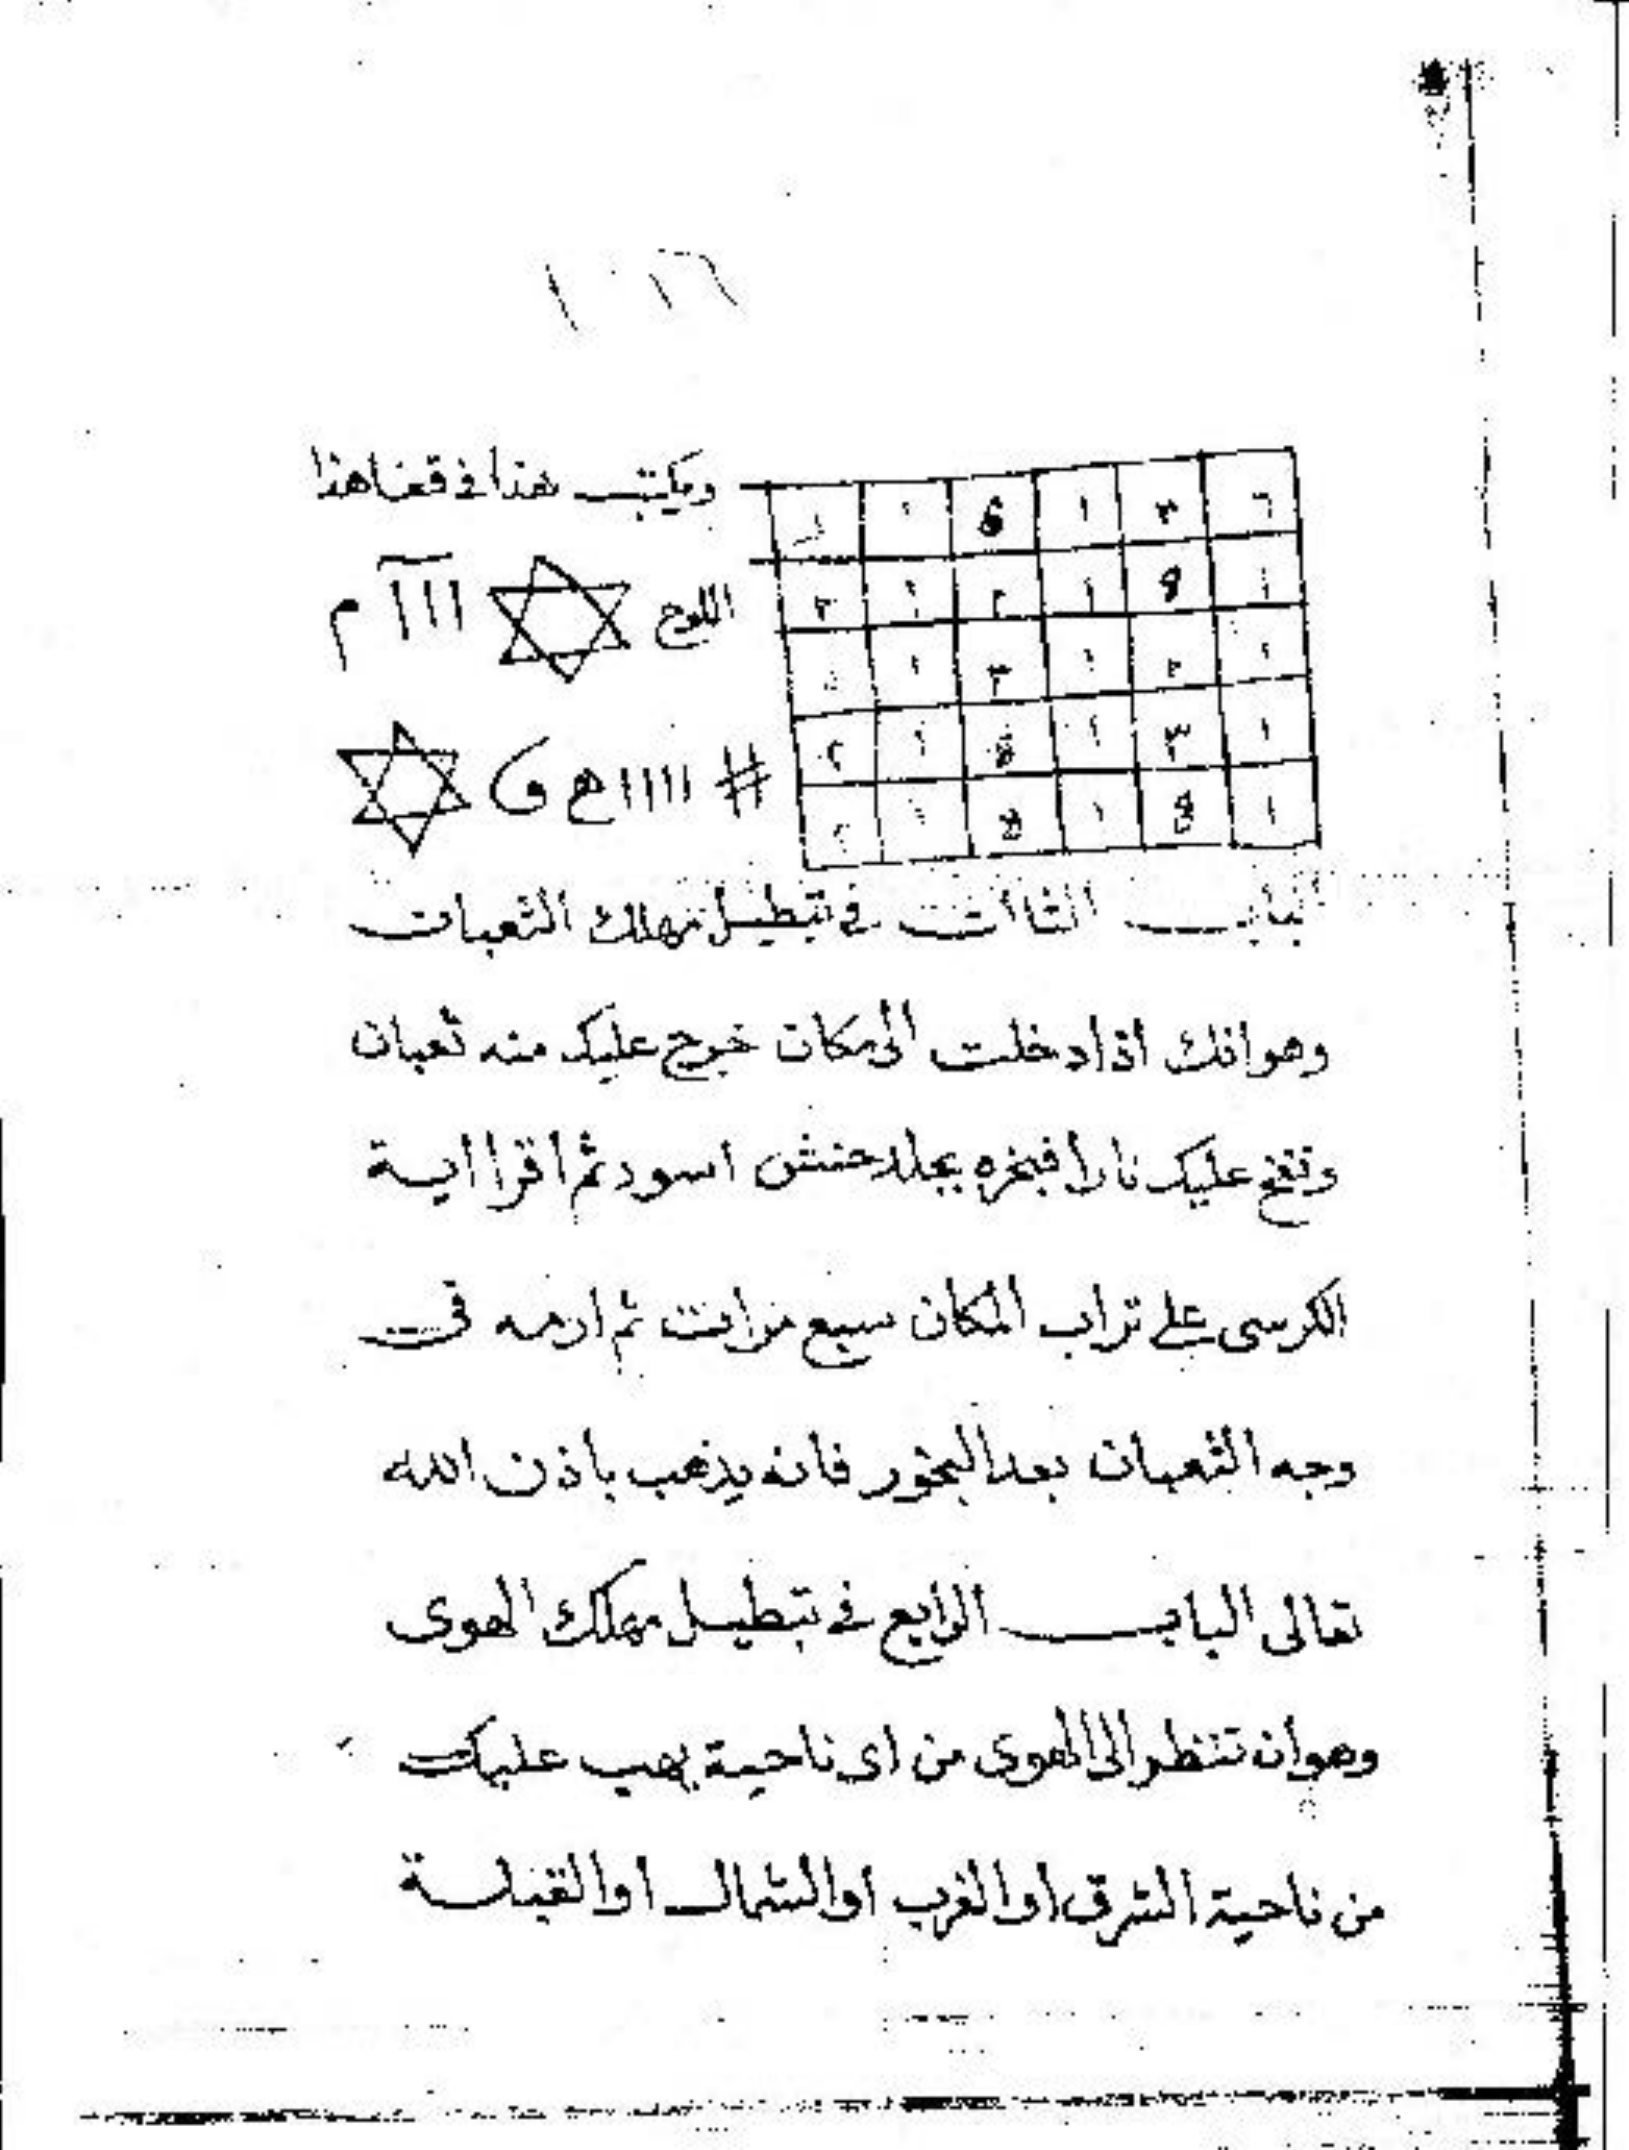 ١٠١٦
ويكتب هذا في قفا هذا
اللوح ااا م
# اااا ح
٦ ٣ ١ 6 ١
١ 9 ١ ٢ ١ ٢
١ ٢ ١ ٣ ١
١ ٣ ١ ١ ٢
١ ١ ١ ٢
الباب الثالث في تبطيل مهلك الثعبان
وهو انك اذا دخلت الى مكان خرج عليك منه ثعبان
ونفخ عليك نارا فبخره بجلد حنش اسود ثم اقرا اية
الكرسى على تراب المكان سبع مرات ثم ارمه فى
وجه الثعبان بعد البخور فانه يذهب باذن الله
تعالى الباب الرابع في تبطيل مهلك الهوى
وهو ان تنظر الى الهوى من اى ناحية يهب عليك
من ناحية الشرق او الغرب او الشمال او القبلة